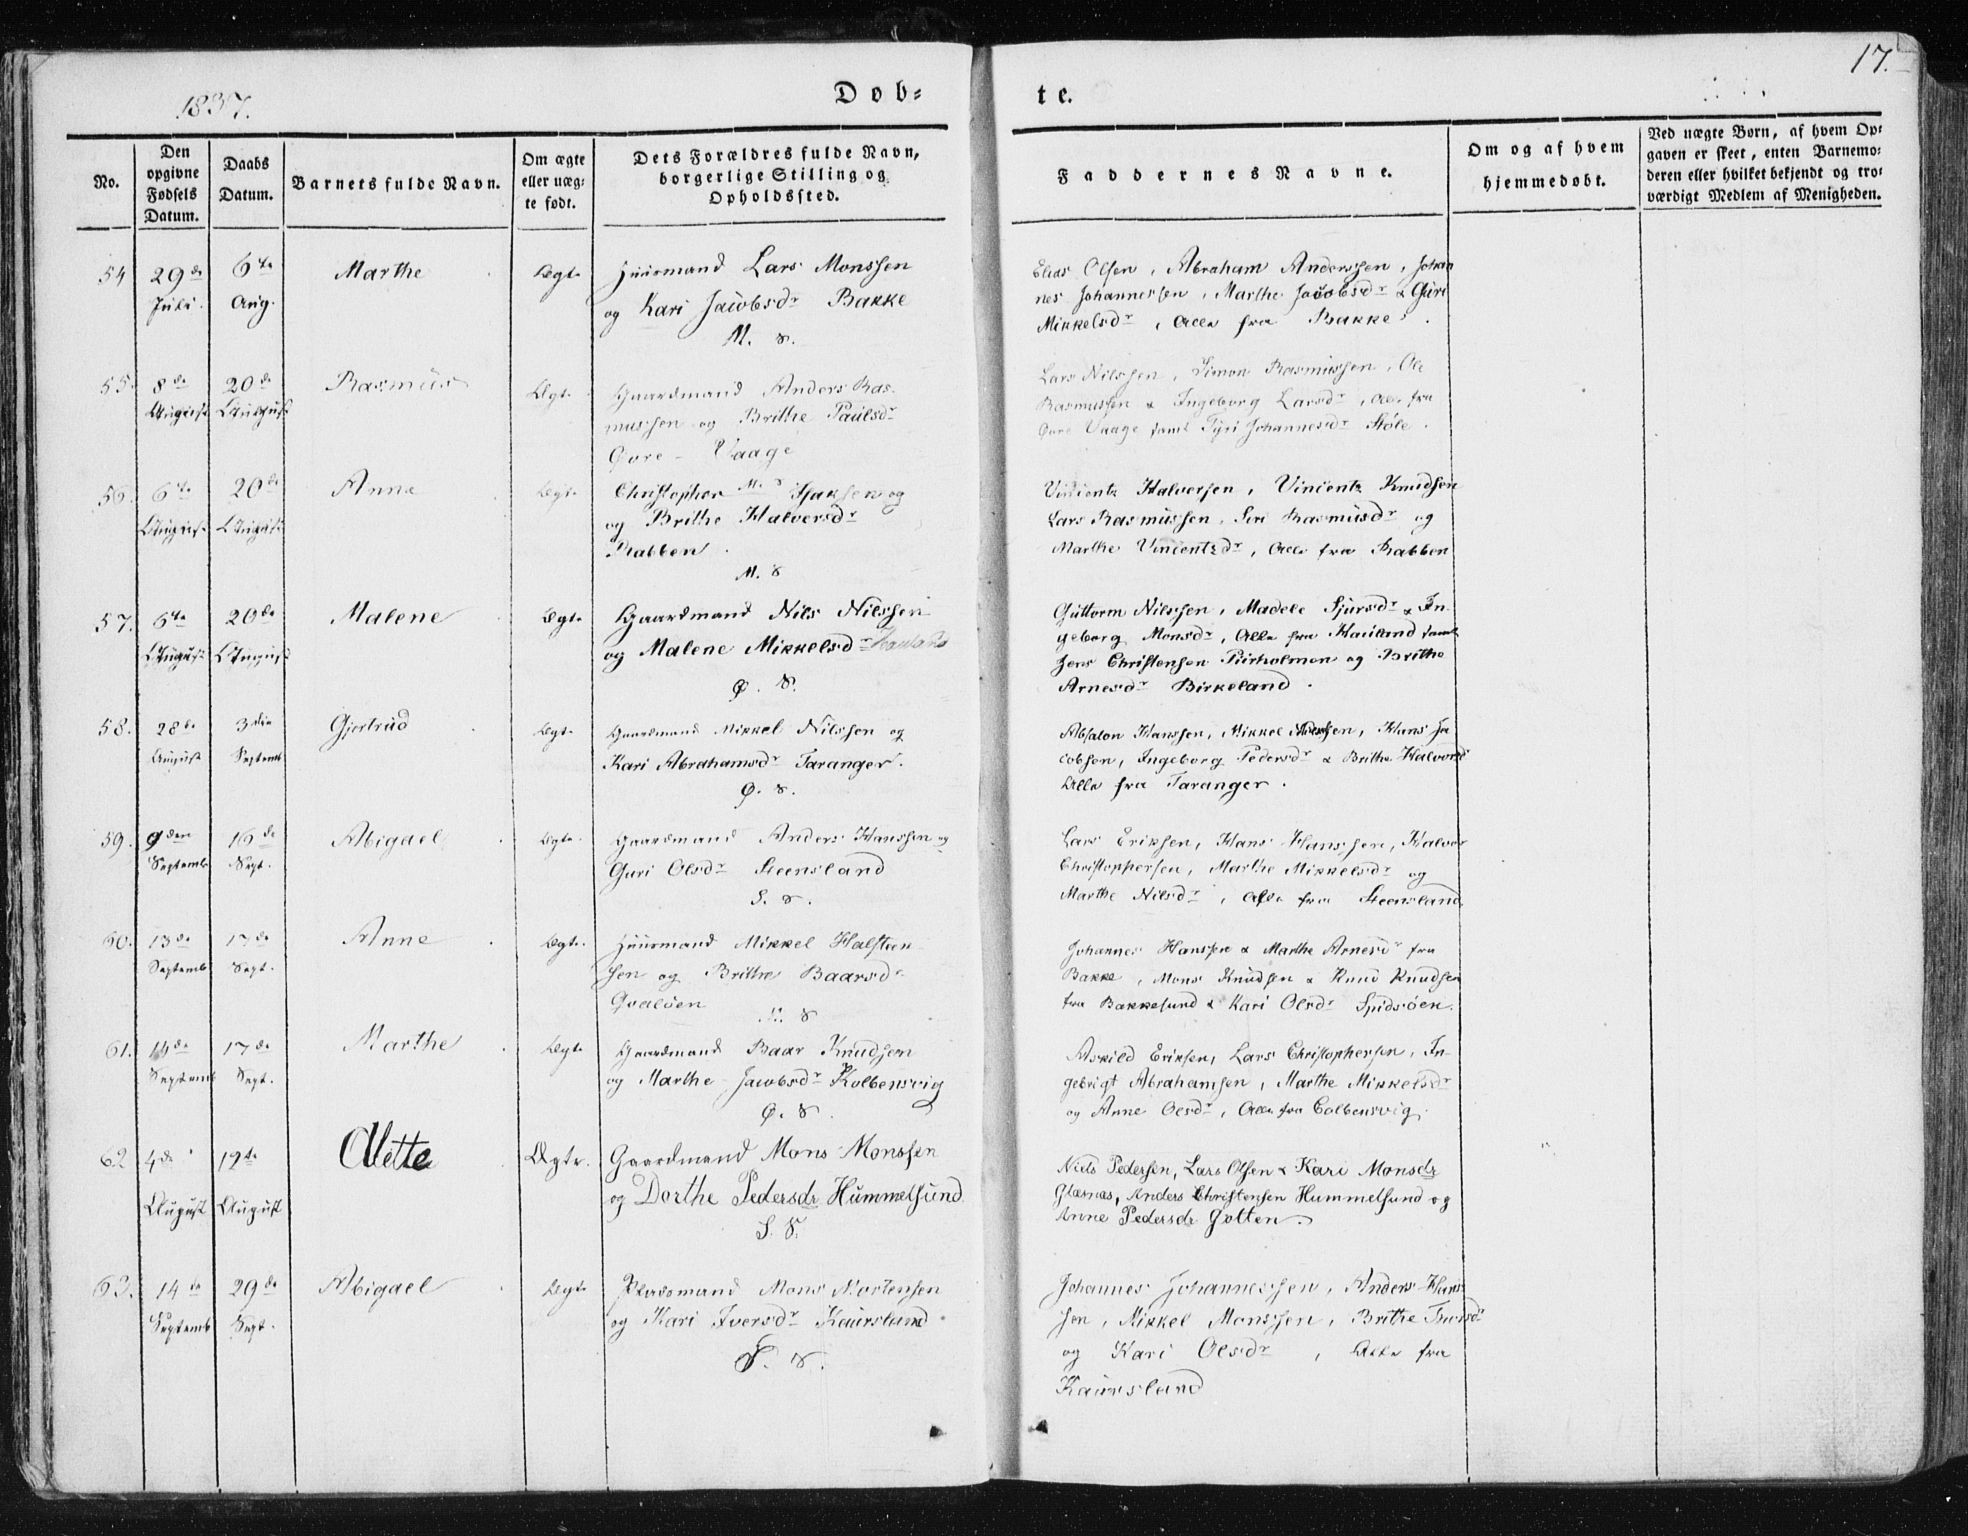 17.
1837.
Døb-
te.
No.
Den opgivne Fødsels Datum.
Daabs Datum.
Barnets fulde Navn.
Om ægte eller uæg-te født.
Dets Forældres fulde Navn, borgerlige Stilling og Opholdssted.
Faddernes Navne.
Om og af hvem hjemmedøbt.
Ved uægte Børn, af hvem Op-gaven er skeet, enten Barnemo-deren eller hvilket bekjendt og tro-værdigt Medlem af Menigheden.
54 29de 6te Marthe Ægte Huusmand Lars Monssen
Juli. Aug. og Kari Jacobsdr Bakke
M. S.
Elias Olsen, Abraham Anderssen, Johan
nes Johannessen, Marthe Jacobsdr & Guri
Mikkelsdr, Alle fra Bakke.
55. 8de 20de Rasmus Ægte Gaardmand Anders Ras-
August August mussen og Brithe Paulsdr
Øvre - Vaage
M. S
Lars Nilssen, Simon Rasmussen, Ole
Rasmussen & Ingeborg Larsdr, Alle fra
Øvre Vaage samt Tyri Johannesdr Støle.
56. 6te 20de Anne Ægte Christopher Isaksen og
August August og Brithe Halversdr
Rabben.
M. S
Vincentz Halversen, Vincentz Knudsen
Lars Rasmussen, Siri Rasmusdr og
Marthe Vincentzdr, Alle fra Rabben
57. 6te 20de Malene Ægte Gaardmand Nils Nilssen
August August og Malene Mikkelsdr
Ø. S.
Guttorm Nilssen, Madele Sjursdr & In-
geborg Monsdr, Alle fra Hauland samt
Jens Christensen Piirholmen og Brithe
Arnesdr Birkeland.
58. 28de 3die Gjertrud Ægte Gaardmand Mikkel Nilssen og
August Septemb Kari Abrahamsdr Taranger.
Ø. S.
Absalon Hanssen, Mikkel Hanssen, Hans Ja
cobsen, Ingeborg Pedersdr & Brithe Halvorsd
Alle fra Taranger.
59. 9den 16de Abigael Ægte Gaardmand Anders Hanssen og
Septemb Sept. Guri Olsdr Steensland
S. S.
Lars Eriksen, Hans Hanssen, Halvor
Christophersen, Marthe Mikkelsdr og
Marthe Nilsdr, Alle fra Steensland
60. 13de 17de Anne Ægte. Huusmand Mikkel Halsteen-
Septemb Sept. sen og Brithe Baarsdr
Gvaløen
M. S
Johannes Hanssen & Marthe Arnesdr fra
Bakke, Mons Knudsen & Knud Knudsen
fra Bakkesund & Kari Olsdr Spidsøen.
61. 17de Marthe Ægte Gaardmand Baar Knudsen
Septemb Sept. og Marthe Jacobsdr Kolbensvig
Ø. S.
Askild Eriksen, Lars Christophersen, In-
gebrigt Abrahamsen, Marthe Mikkelsdr
og Anne Olsdr, Alle fra Colbensvig.
62 4de 19te Olette Ægte. Gaardmand Mons Monssen
August August og Dorthe Pedersdr Hummelsund
S. S.
Niels Pedersen, Lars Olsen & Kari Monsdr
Glæsnæs, Anders Christensen Hummelsund og
Anne Pedersdr Golten.
63. 14de 29de Abigael Ægte Pladsmand Mons Mortensen
Septemb Sept. og Kari Iversdr Kaursland.
S. S.
Johannes Johannessen, Anders Hans-
sen, Mikkel Monssen, Brithe
og Kari Olsdr, Alle fra
Kaursland